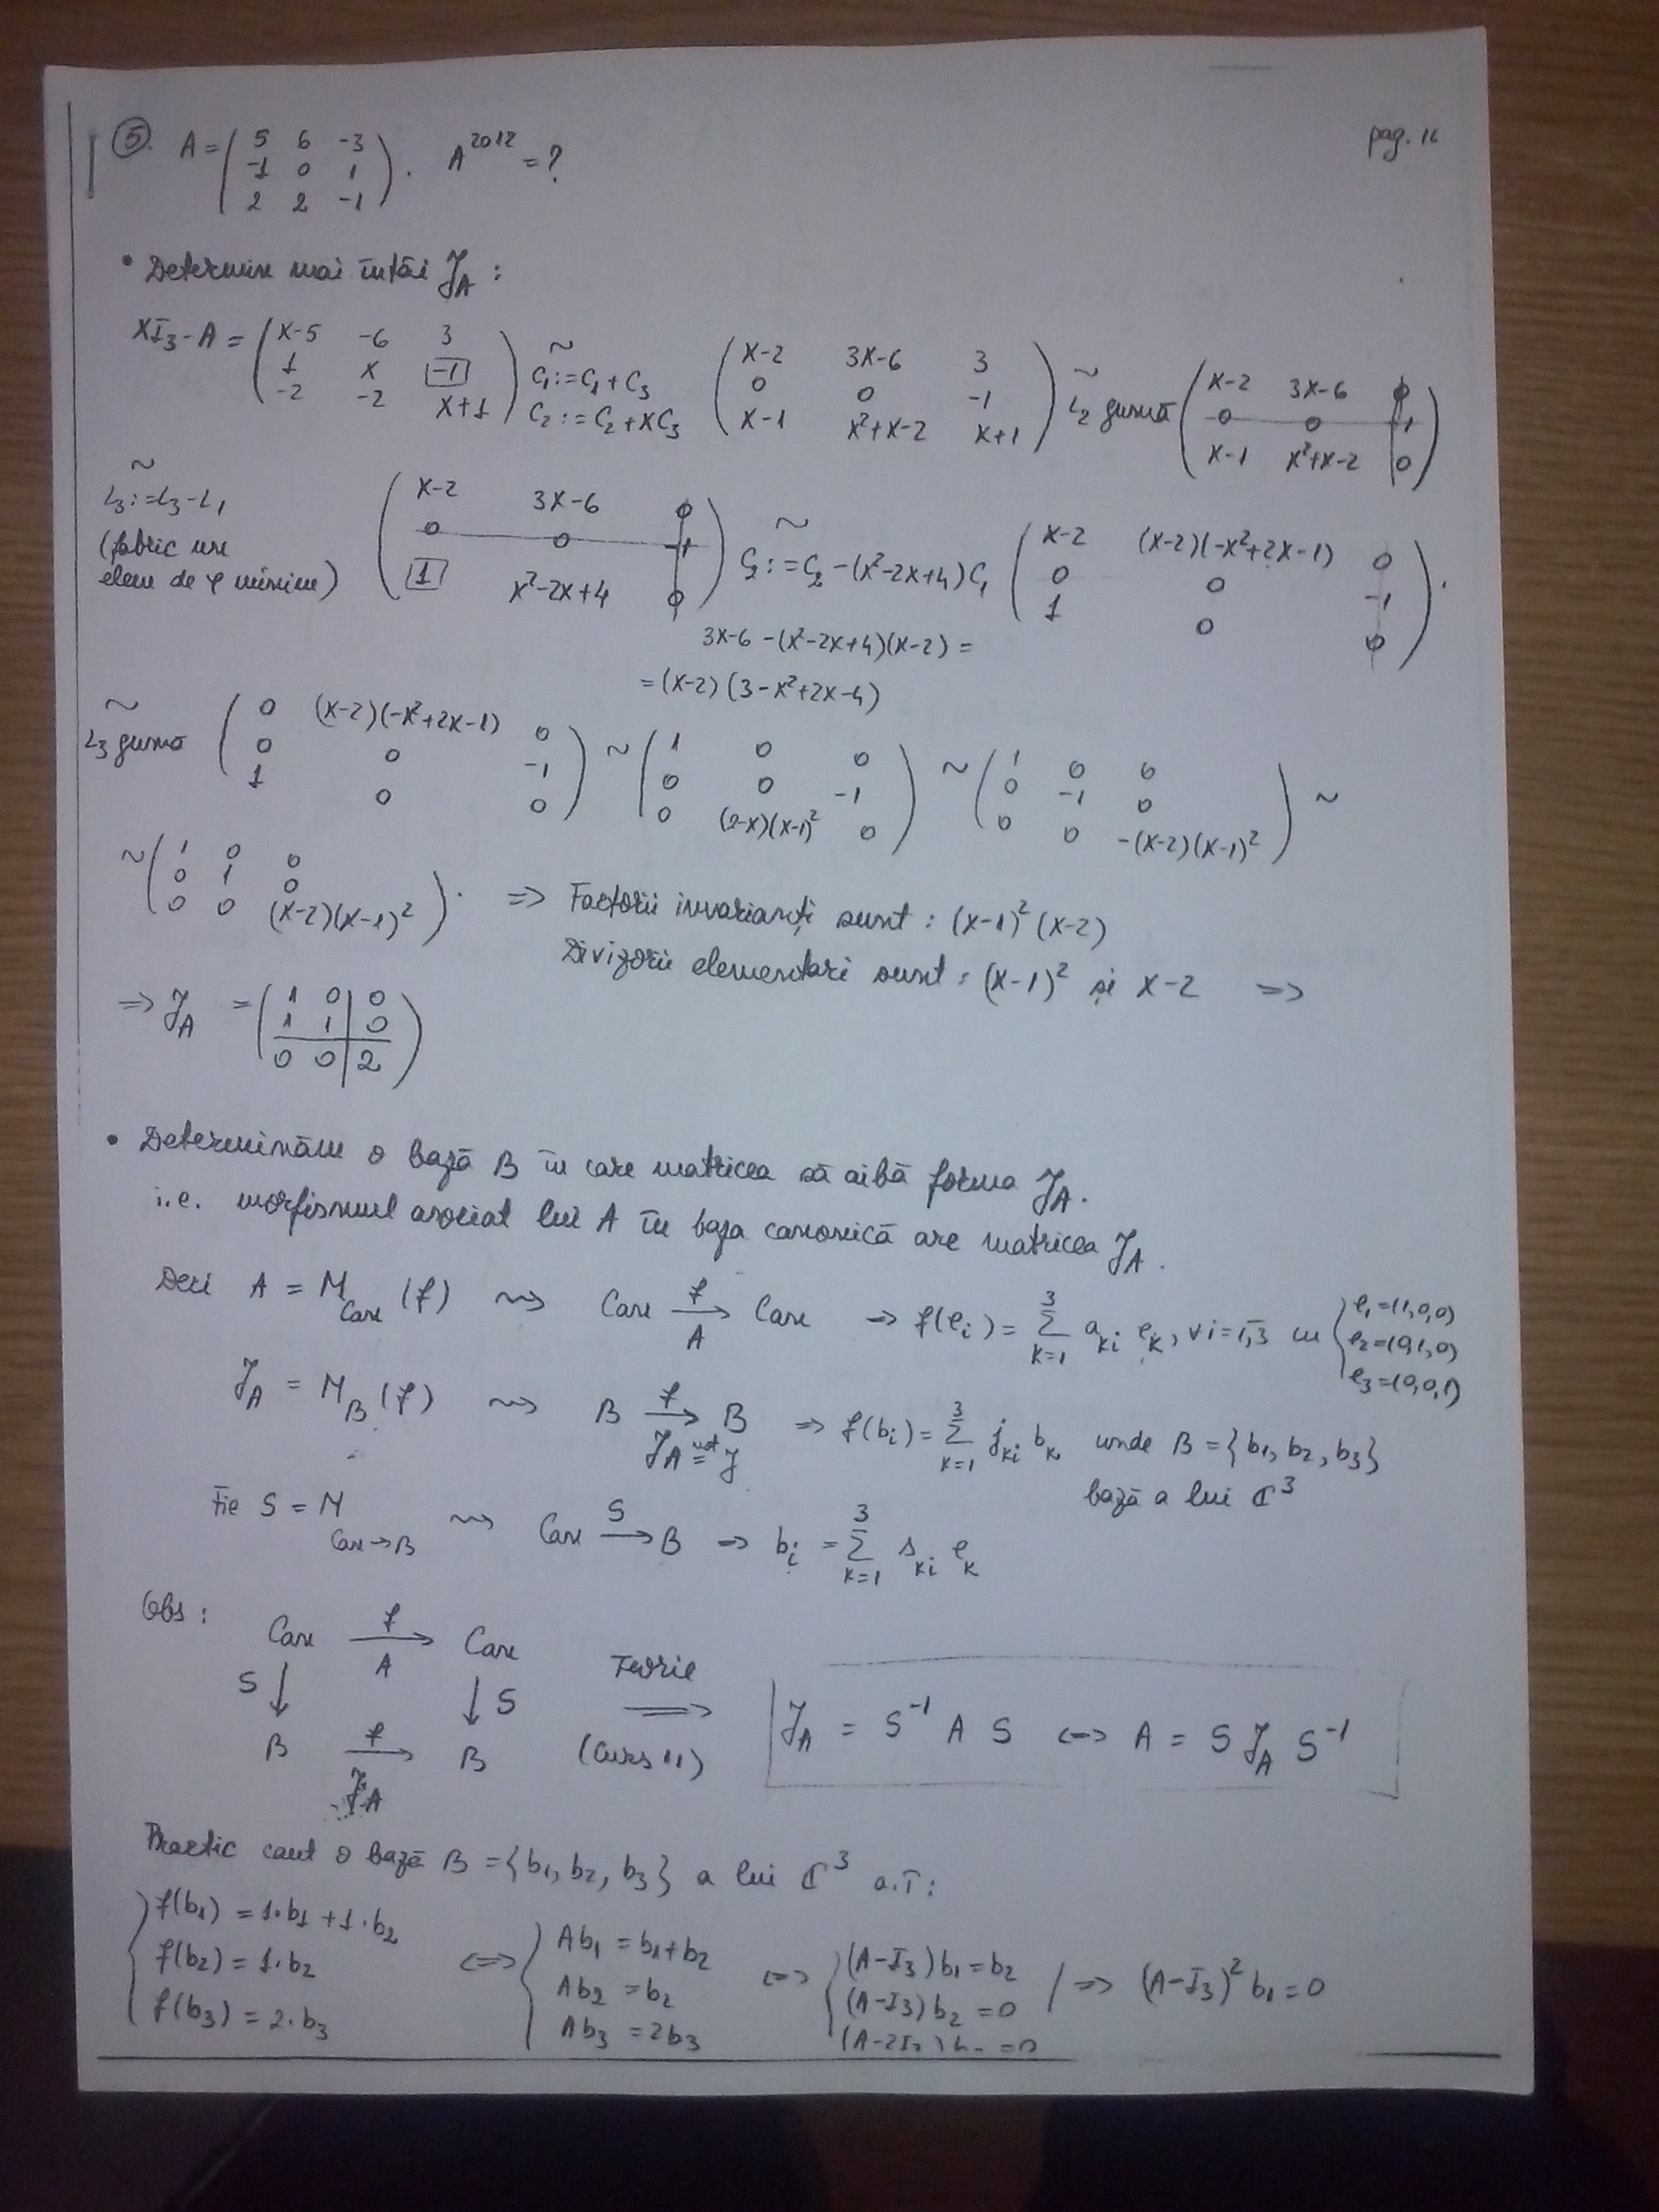 pag. 16
⑤. A = ( 5 6 -3 ; -1 0 1 ; 2 2 -1 ). A^2012 = ?
• Determin mai întâi J_A :
XI₃-A = ( X-5 -6 3 ; 1 X -1 ; -2 -2 X+1 ) ~ C₁:=C₁+C₃ C₂:=C₂+XC₃ ( X-2 3X-6 3 ; 0 0 -1 ; X-1 X²+X-2 X+1 ) ~ L₂ gumă ( X-2 3X-6 0 ; 0 0 -1 ; X-1 X²+X-2 0 )
~ L₃:=L₃-L₁ (fabric un elem de φ minim) ( X-2 3X-6 0 ; 0 0 -1 ; 1 X²-2X+4 0 ) ~ C₂:=C₂-(X²-2X+4)C₁ ( X-2 (X-2)(-X²+2X-1) 0 ; 0 0 -1 ; 1 0 0 ).
3X-6 -(X²-2X+4)(X-2) =
= (X-2)(3-X²+2X-4)
~ L₃ gumă ( 0 (X-2)(-X²+2X-1) 0 ; 0 0 -1 ; 1 0 0 ) ~ ( 1 0 0 ; 0 0 -1 ; 0 (2-X)(X-1)² 0 ) ~ ( 1 0 0 ; 0 -1 0 ; 0 0 -(X-2)(X-1)² ) ~
~ ( 1 0 0 ; 0 1 0 ; 0 0 (X-2)(X-1)² ). => Factorii invarianți sunt : (X-1)² (X-2)
Divizorii elementari sunt : (X-1)² și X-2 =>
=> J_A = ( 1 0 0 ; 1 1 0 ; 0 0 2 )
• Determinăm o bază B în care matricea să aibă forma J_A.
i.e. morfismul asociat lui A în baza canonică are matricea J_A.
Deci A = M_Can (f) ⇝ Can f→ A Can => f(e_i) = Σ_{k=1}^{3} a_ki e_k, ∀ i=1,3 cu { e₁=(1,0,0) e₂=(0,1,0) e₃=(0,0,1)
J_A = M_B (f) ⇝ B f→ J_A not= J B => f(b_i) = Σ_{k=1}^{3} j_ki b_k unde B = {b₁, b₂, b₃}
bază a lui ℂ³
Fie S = M_Can→B ⇝ Can S→ B => b_i = Σ_{k=1}^{3} s_ki e_k
Obs :
Can f→ A Can
S ↓ ↓ S Teorie => (Curs 11) J_A = S⁻¹ A S <=> A = S J_A S⁻¹
B f→ J_A B
Practic caut o bază B = {b₁, b₂, b₃} a lui ℂ³ a.î :
{ f(b₁) = 1·b₁ + 1·b₂ <=> { Ab₁ = b₁+b₂ <=> { (A-I₃)b₁ = b₂
f(b₂) = 1·b₂ Ab₂ = b₂ (A-I₃)b₂ = 0 / => (A-I₃)² b₁ = 0
f(b₃) = 2·b₃ Ab₃ = 2b₃